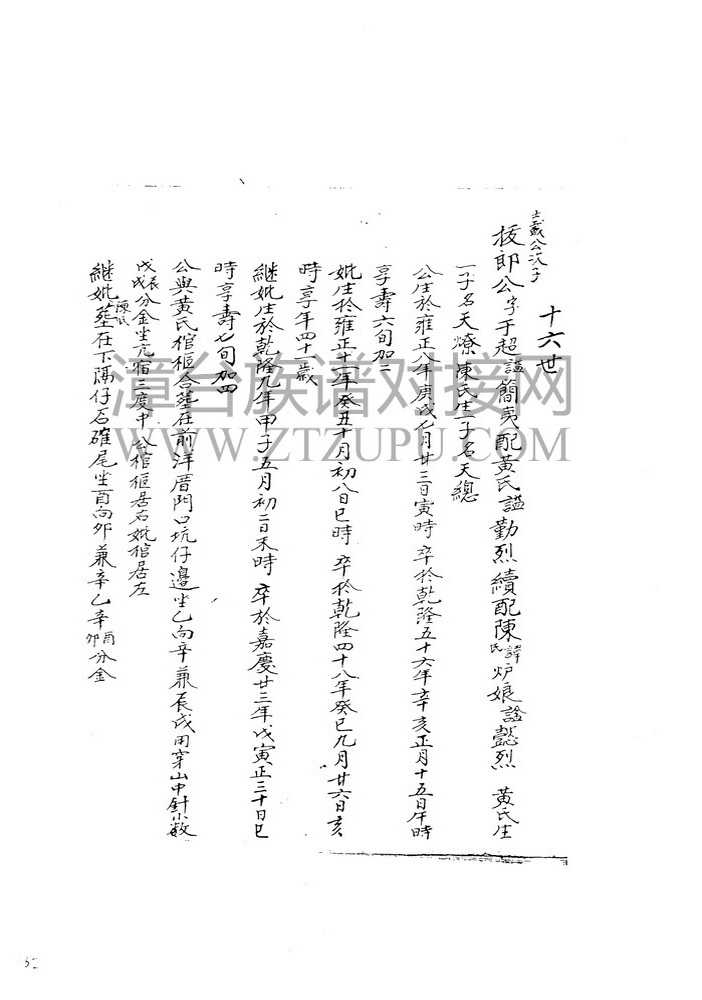 十六世
士戴公次子
援郎公字于超諡簡夷配黃氏諡勤烈續配陳氏諱炉娘諡懿烈 黃氏生
一子名天燎陳氏生一子名天總
公生於雍正八年庚戌七月廿三日寅時 卒於乾隆五十六年辛亥正月十五日午時
享壽六旬加二
妣生於雍正十一年癸丑十月初八日巳時 卒於乾隆四十八年癸巳九月廿六日亥
時享年四十一歲
繼妣生於乾隆九年甲子五月初二日未時 卒於嘉慶廿三年戊寅正三十日巳
時享壽七旬加四
公與黃氏棺柩合塟在前洋厝門口坑仔邊坐乙向辛兼辰戌用穿山中針小数
戊辰戊戌分金坐亢宿三度中 公棺柩居右妣棺居左
繼妣陳氏塟在下隔仔石確尾坐酉向卯兼辛乙辛酉辛卯分金
漳台族谱对接网
WWW.ZTZUPU.COM